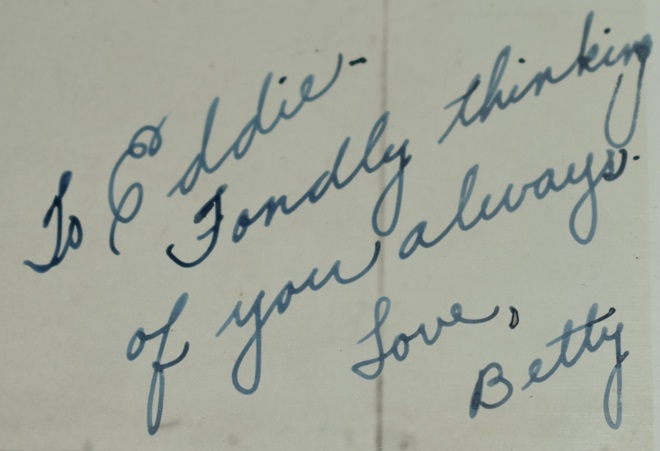 To Eddie-
Fondly thinking
of you always.
Love,
Betty